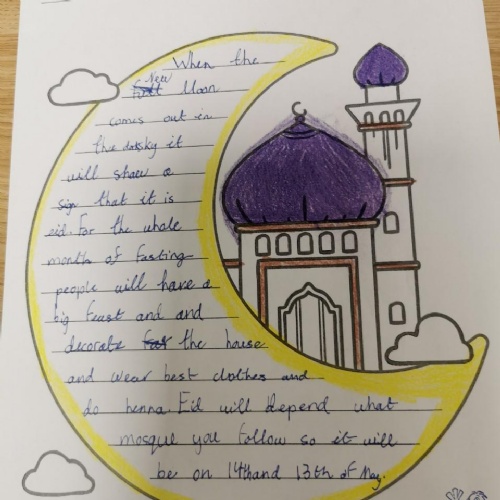 When the
New
Moon
comes out in
the dark sky it
will show a
sign that it is
eid. For the whole
month of fasting
people will have a
big feast and and
decorate the house
and wear best clothes and
do henna Eid will depend what
mosque you follow so it will
be on 14th and 13th of May.